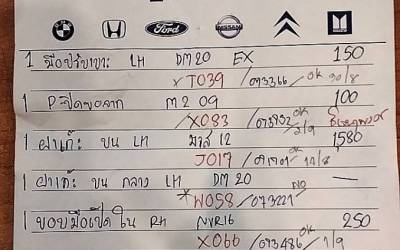 Ford
NISSAN
1 มือปรับเบาะ LH DM20 EX 150
x TO39 /073366 / OK 30/8
1 Pะปิดขอลาก M2 09 100
/X083 /073932 / OK 2/9
1 ฝาแก้ม บน LH มาส 12 1580
JO17 / 071701 / OK 14/8
1 ฝาแก้ม บน กลาง LH DM20
* WO58 / 073221 NO
1 ขอบมือเปิดใน RH NVR16 250
X066 / 073486 OK 1/9